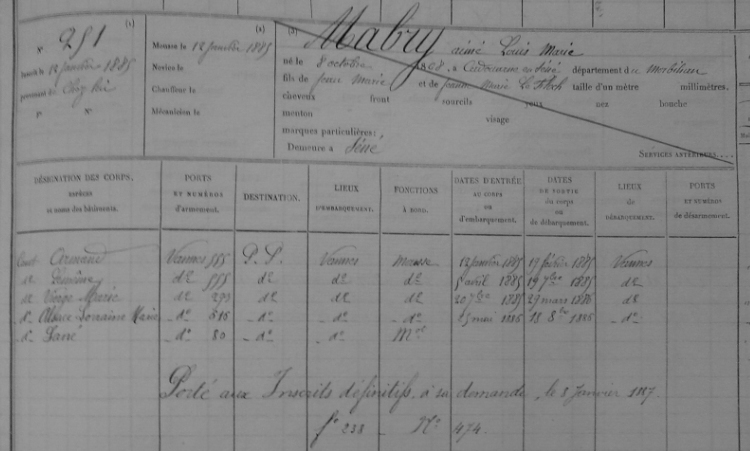 N° 251
Inscrit le 12 janvier 1885
provenant de Chez lui
F° N°
(1)
Mousse le 12 janvier 1885
Novice le
Chauffeur le
Mécanicien le
(2)
(3) Mabry aimé Louis Marie
né le 8 octobre 1868 à en Séné département du Morbihan
fils de Marie et de Marie taille d'un mètre millimètres.
cheveux front sourcils yeux nez bouche
menton visage
marques particulières :
Demeure à Séné
SERVICES ANTÉRIEURS
DÉSIGNATION DES CORPS, espèces et noms des bâtiments.
PORTS ET NUMÉROS d'armement.
DESTINATION.
LIEUX D'EMBARQUEMENT.
FONCTIONS À BORD.
DATES D'ENTRÉE AU CORPS OU d'embarquement.
DATES DE SORTIE du corps ou de débarquement.
LIEUX de DÉBARQUEMENT.
PORTS ET NUMÉROS de désarmement.
Armand Vannes 555 P. P. Vannes mousse 12 janvier 1885 17 février 1885 Vannes
d° 555 d° d° d° 5 avril 1885 19 7bre 1885 d°
Vierge Marie d° 293 d° d° d° 20 7bre 1885 29 mars 1886 d°
d° Alsace Lorraine Marie d° 686 d° d° d° mai 1886 18 8bre 1886 d°
d° d° 80 d° d° Mot
Porté aux Inscrits définitifs, à sa demande, le 8 Janvier 1887.
f° 238 N° 474.